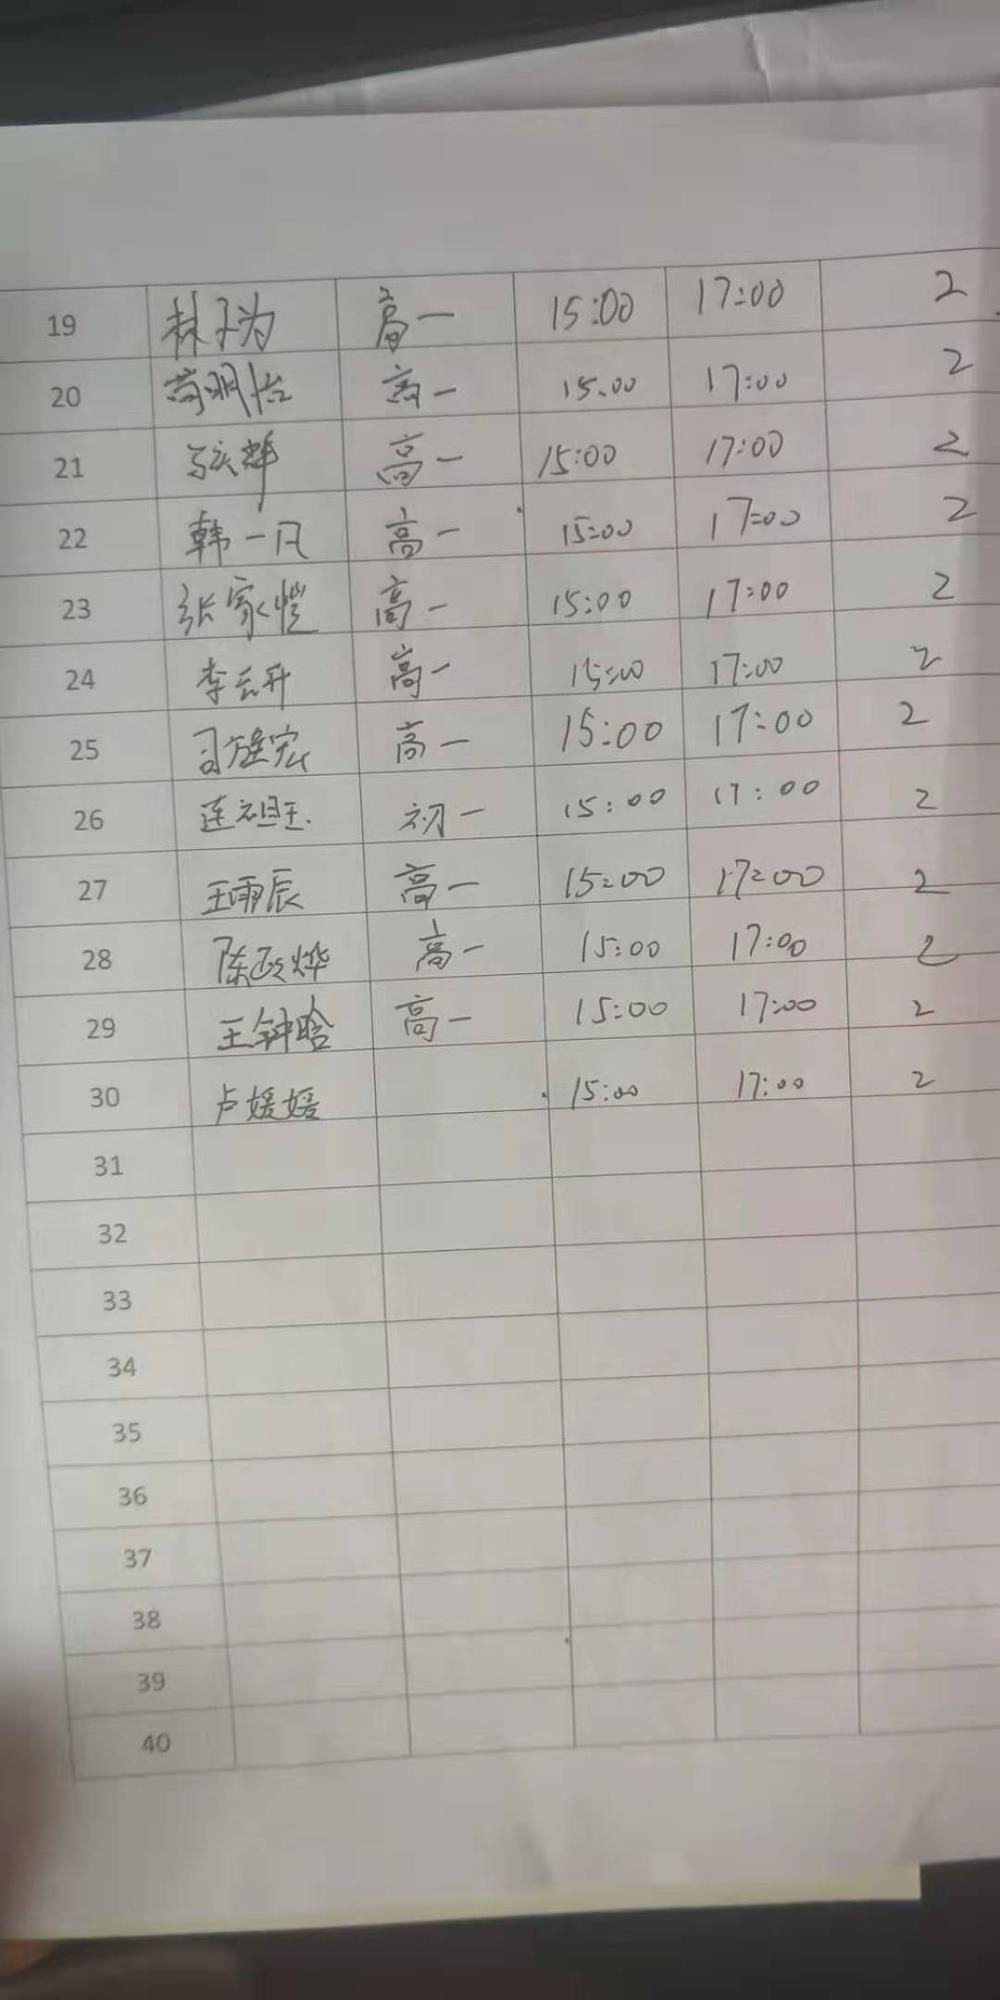 19 林子为 高一 15:00 17:00 2
20 明怡 高一 15:00 17:00 2
21 高一 15:00 17:00 2
22 韩一凡 高一 15:00 17:00 2
23 张家恺 高一 15:00 17:00 2
24 李云升 高一 15:00 17:00 2
25 高一 15:00 17:00 2
26 连祖 初一 15:00 17:00 2
27 王雨辰 高一 15:00 17:00 2
28 陈政烨 高一 15:00 17:00 2
29 王钟晗 高一 15:00 17:00 2
30 卢媛媛 15:00 17:00 2
31
32
33
34
35
36
37
38
39
40